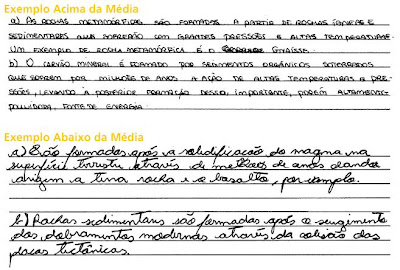 Exemplo Acima da Média
a) AS ROCHAS METAMÓRFICAS SÃO FORMADAS A PARTIR DE ROCHAS ÍGNEAS E
SEDIMENTARES QUE SOFRERÃO COM GRANDES PRESSÕES E ALTAS TEMPERATURAS.
UM EXEMPLO DE ROCHA METAMÓRFICA É O GNAISSE.
b) O CARVÃO MINERAL É FORMADO POR SEDIMENTOS ORGÂNICOS SOTERRADOS
QUE SOFREM POR MILHÕES DE ANOS A AÇÃO DE ALTAS TEMPERATURAS E PRE-
SSÕES, LEVANDO A POSTERIOR FORMAÇÃO DESSA, IMPORTANTE, PORÉM ALTAMENTE
POLUIDORA, FONTE DE ENERGIA.
Exemplo Abaixo da Média
a) São formadas após a solidificação do magma na
superfície terrestre através de milhões de anos dando
origem a uma rocha e o basalto, por exemplo.
b) Rochas sedimentares são formadas após o surgimento
dos dobramentos modernos através da colisão das
placas tectônicas.